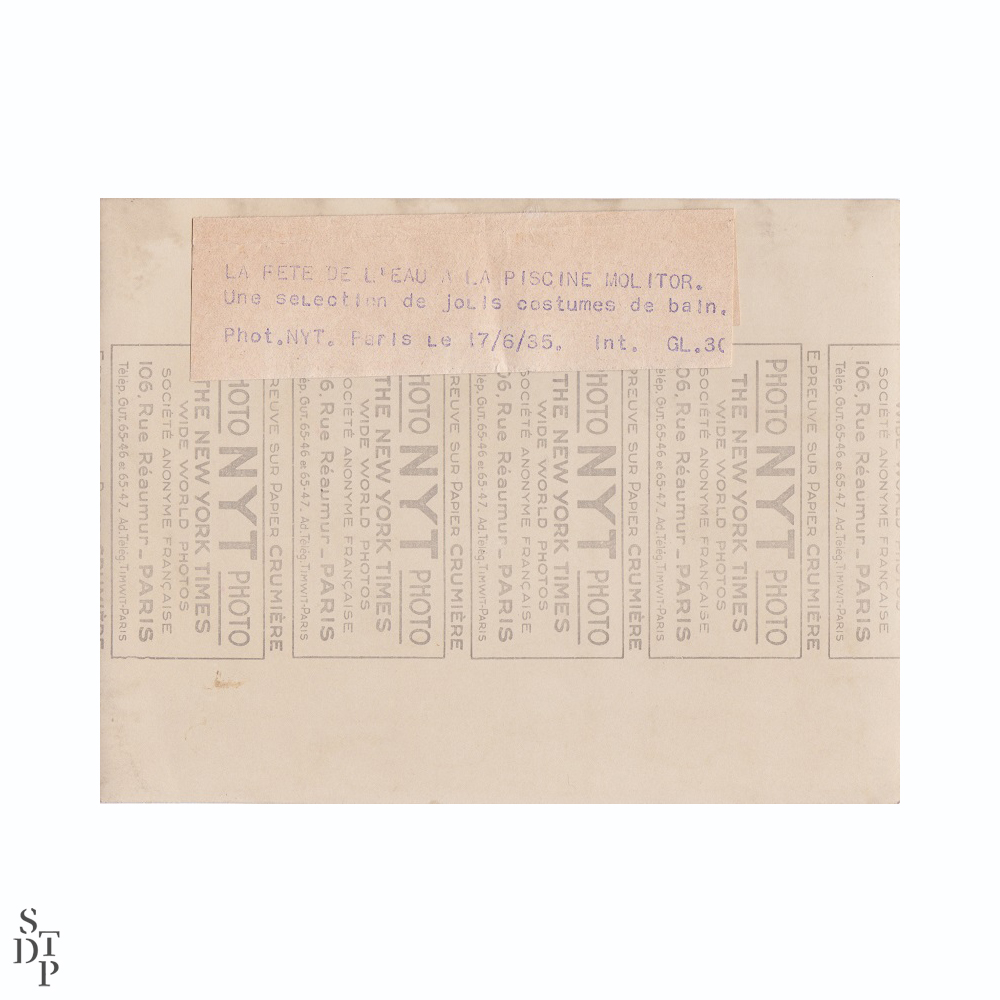 LA FETE DE L'EAU A LA PISCINE MOLITOR.
Une selection de jolis costumes de bain.
Phot.NYT. Paris le 17/6/35. Int. GL.30
Télép. Gut. 65-46 et 65-47. Ad. Télég. Timwit-Paris
106, Rue Réaumur _ PARIS
SOCIÉTÉ ANONYME FRANÇAISE
WIDE WORLD PHOTOS
THE NEW YORK TIMES
PHOTO NYT PHOTO
EPREUVE SUR PAPIER CRUMIÈRE
Télép. Gut. 65-46 et 65-47. Ad. Télég. Timwit-Paris
106, Rue Réaumur _ PARIS
SOCIÉTÉ ANONYME FRANÇAISE
WIDE WORLD PHOTOS
THE NEW YORK TIMES
PHOTO NYT PHOTO
EPREUVE SUR PAPIER CRUMIÈRE
Télép. Gut. 65-46 et 65-47. Ad. Télég. Timwit-Paris
106, Rue Réaumur _ PARIS
SOCIÉTÉ ANONYME FRANÇAISE
WIDE WORLD PHOTOS
THE NEW YORK TIMES
PHOTO NYT PHOTO
EPREUVE SUR PAPIER CRUMIÈRE
Télép. Gut. 65-46 et 65-47. Ad. Télég. Timwit-Paris
106, Rue Réaumur _ PARIS
SOCIÉTÉ ANONYME FRANÇAISE
WIDE WORLD PHOTOS
THE NEW YORK TIMES
PHOTO NYT PHOTO
EPREUVE SUR PAPIER CRUMIÈRE
Télép. Gut. 65-46 et 65-47. Ad. Télég. Timwit-Paris
106, Rue Réaumur _ PARIS
SOCIÉTÉ ANONYME FRANÇAISE
SDTP